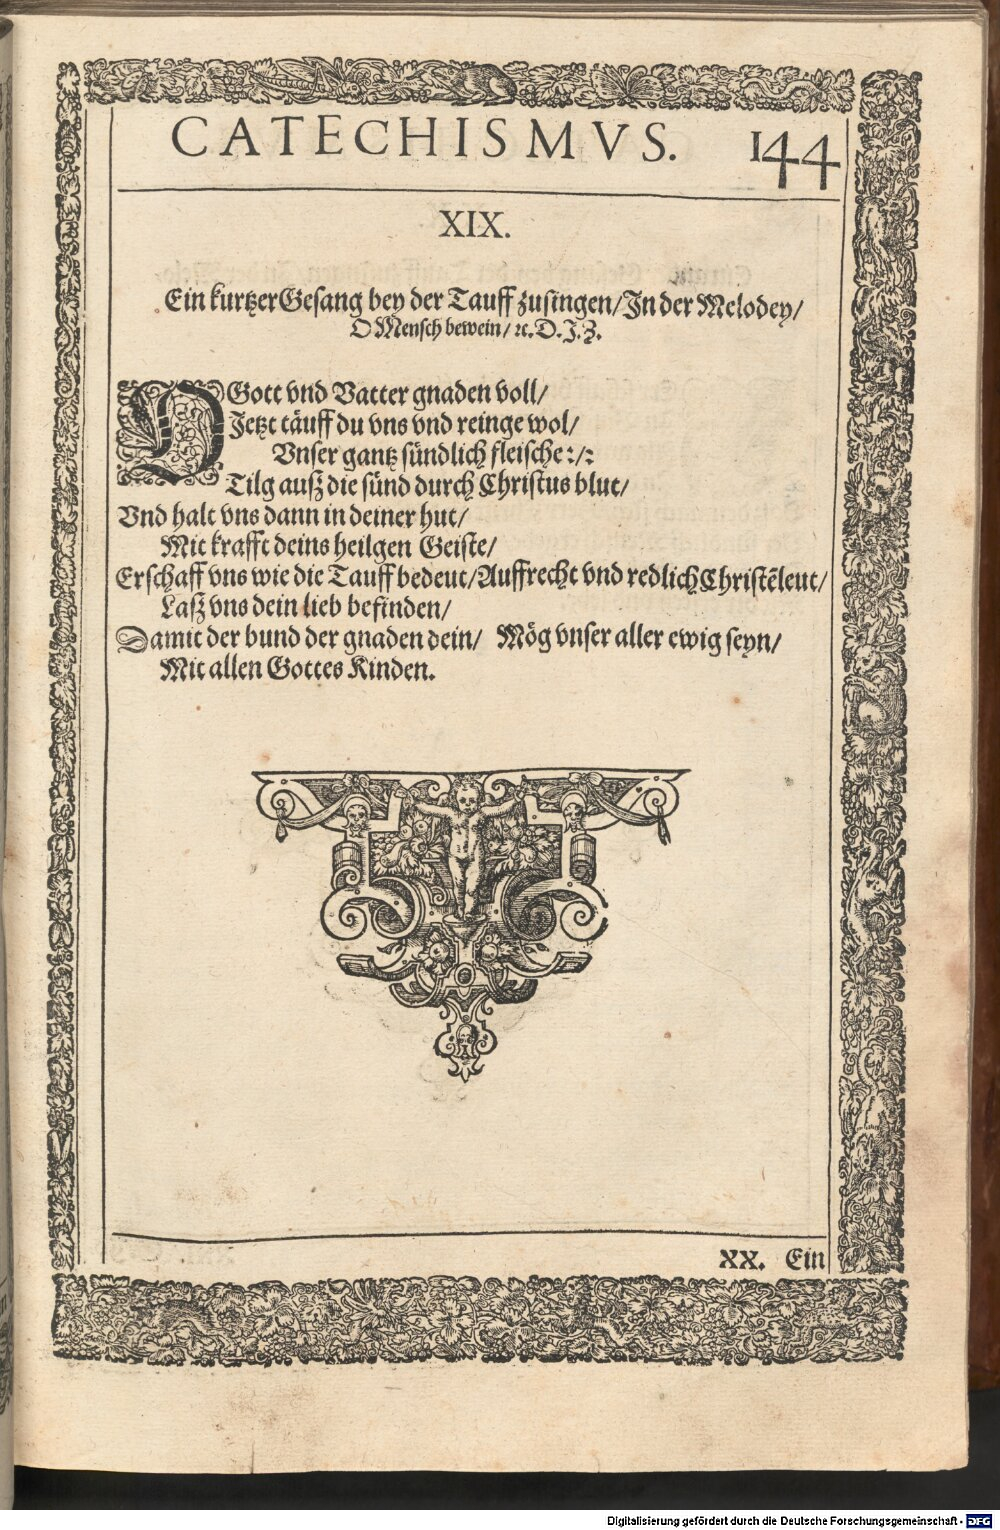 CATECHISMVS. 144
XIX.
Ein kurtzer Gesang bey der Tauff zusingen/ In der Melodey/
O Mensch bewein/ ꝛc. D. J. Z.
O Gott vnd Vatter gnaden voll/
Jetzt täuff du vns vnd reinge wol/
Vnser gantz sündlich fleische :/:
Tilg ausz die sünd durch Christus blut/
Vnd halt vns dann in deiner hut/
Mit krafft deins heilgen Geiste/
Erschaff vns wie die Tauff bedeut/ Auffrecht vnd redlich Christẽleut/
Lasz vns dein lieb befinden/
Damit der bund der gnaden dein/ Mög vnser aller ewig seyn/
Mit allen Gottes Kinden.
XX. Ein
Digitalisierung gefördert durch die Deutsche Forschungsgemeinschaft - DFG